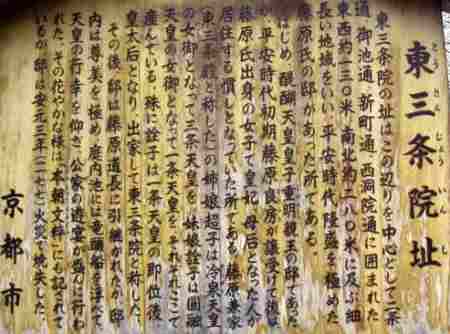 東三条院址
とうさんじょういんし
東三条院の址はこの辺りを中心として二条
通、御池通、新町通、西洞院通に囲まれた
東西約一三〇米、南北約二八〇米に及ぶ細
長い地域をいい、平安時代隆盛を極めた
藤原氏の邸があった所である。
はじめ、醍醐天皇皇子重明親王の邸であった
が、平安時代初期、藤原良房が譲受けて後は、
藤原氏出身の女子で皇妃、母后となった人が
居住する慣しとなっていた所である。藤原兼家
(東三条殿と称した)の姉娘超子は冷泉天皇
の女御となって三条天皇を、妹娘詮子は円融
天皇の女御となって一条天皇を、それぞれここで
産んでいる。殊に詮子は一条天皇の即位後
皇太后となり、出家して東三条院と称した。
その後、邸は藤原道長に引継がれたが、邸
内は善美を極め、庭内池には竜頭船を浮べて
天皇の行幸を仰ぎ、公家の遊宴が盛んに行わ
れた。その花やかな様は「本朝文粋」にも記されて
いるが、邸は安元三年(一一七七)火災で焼失した。
京都市